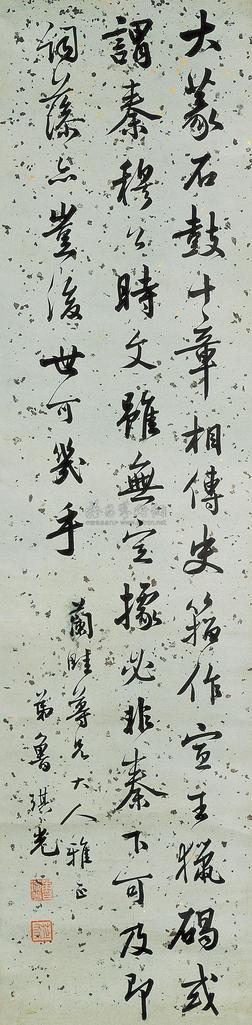 大篆石鼓十章相傳史籀作宣王獵碣或
謂秦穆公時文雖無定據必非秦下可及即
詞藻亦豈後世可幾乎
蘭畦尊兄大人雅正
弟魯琪光